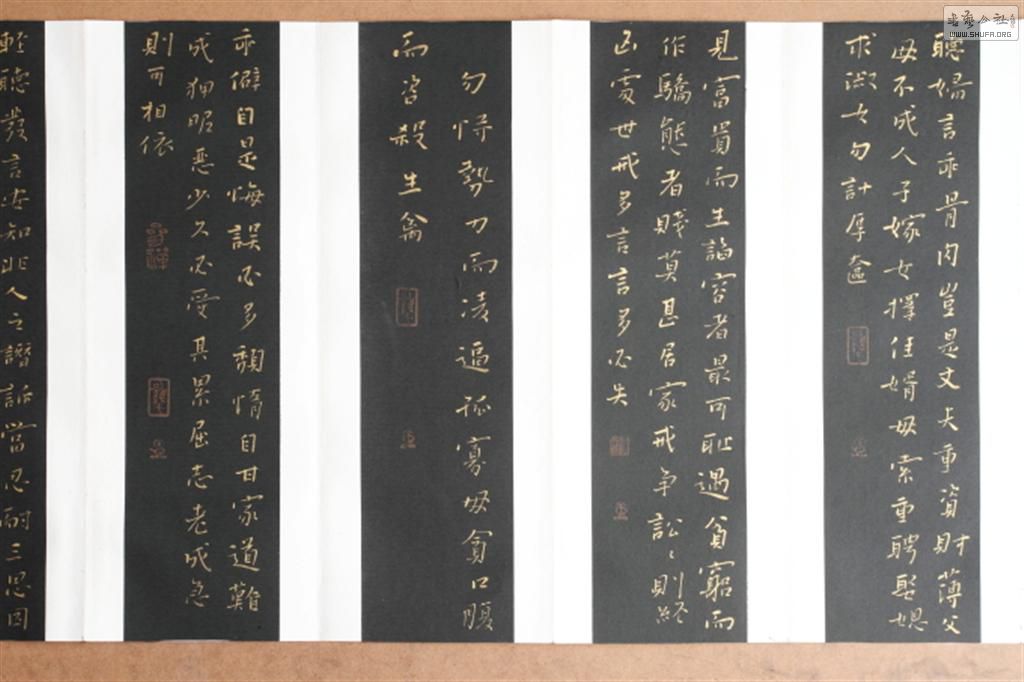 聽婦言乖骨肉豈是丈夫重資財薄父
母不成人子嫁女擇佳婿毋索重聘娶媳
求淑女勿計厚奩
見富貴而生諂容者最可恥遇貧窮而
作驕態者賤莫甚居家戒争訟〻則終
凶處世戒多言言多必失
勿恃勢力而凌逼孤寡毋貪口腹
而恣殺生禽
乖僻自是悔誤必多頹惰自甘家道難
成狎昵惡少久必受其累屈志老成急
則可相依
輕聽發言安知非人之譖訴當忍耐三思因
書藝公社
WWW.SHUFA.ORG